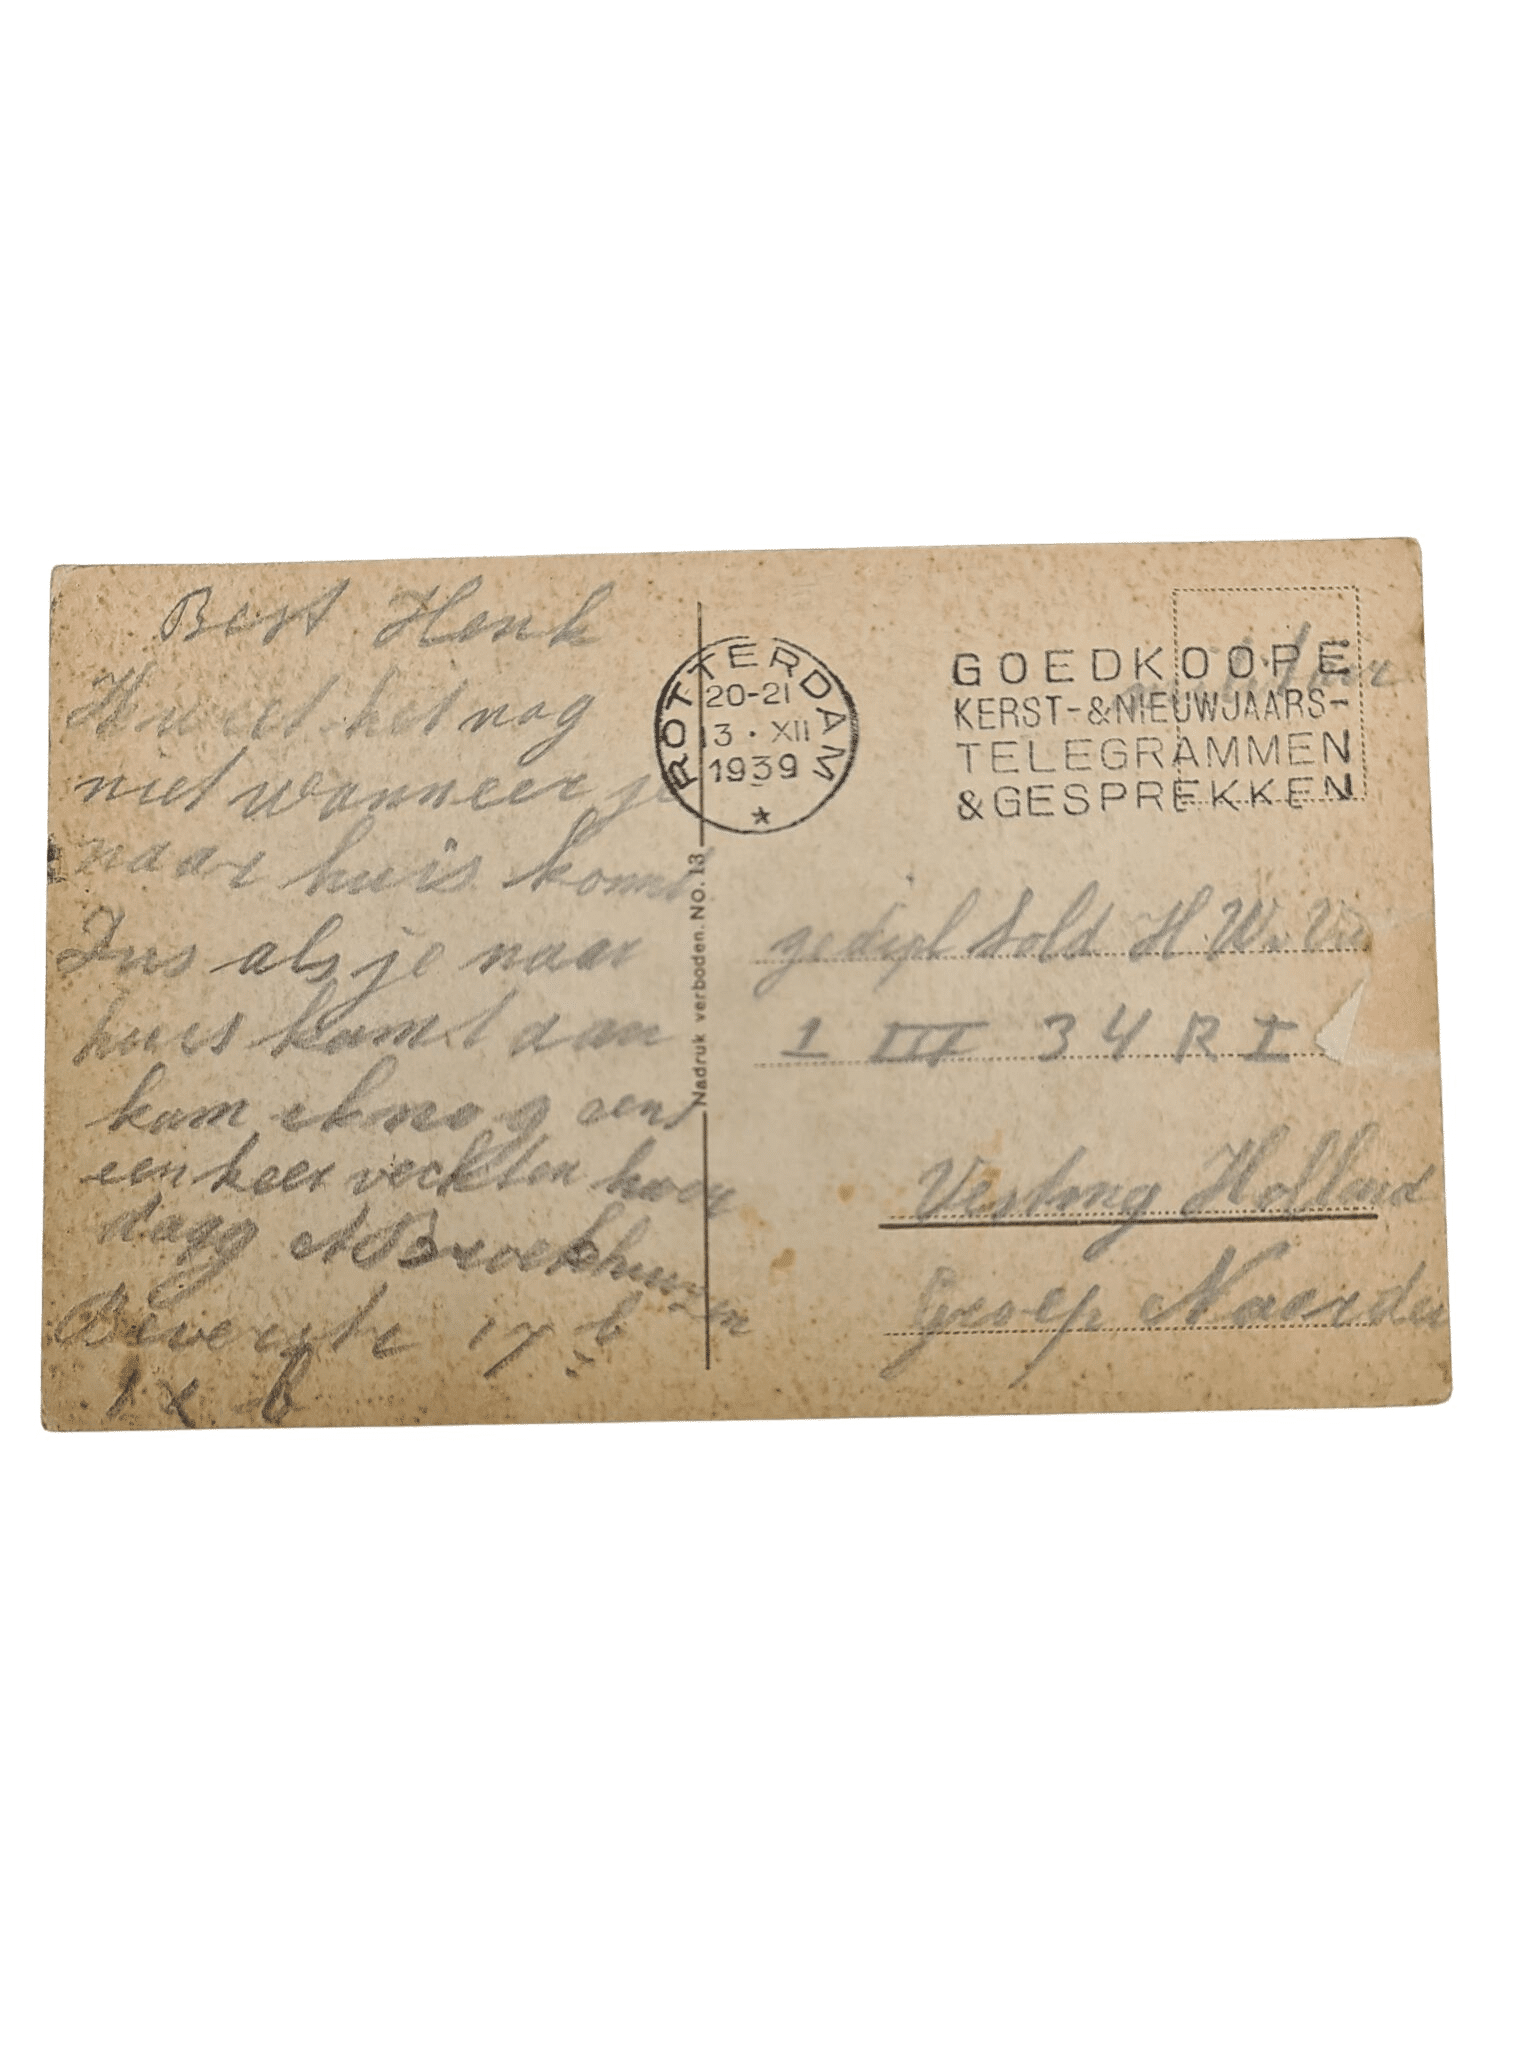 Best Henk
het nog
niet wanneer je
naar huis komt
Dus als je naar
huis komt dan
kom ik nog eens
een keer
dagg A Broekhuizen
17 b
ROTTERDAM
20-21
13 · XII
1939
GOEDKOOPE
KERST- & NIEUWJAARS-
TELEGRAMMEN
& GESPREKKEN
Nadruk verboden. NO. 13
gedipl Sold H. W. v.
1 III 34 R I
Vesting Holland
Groep Naarden